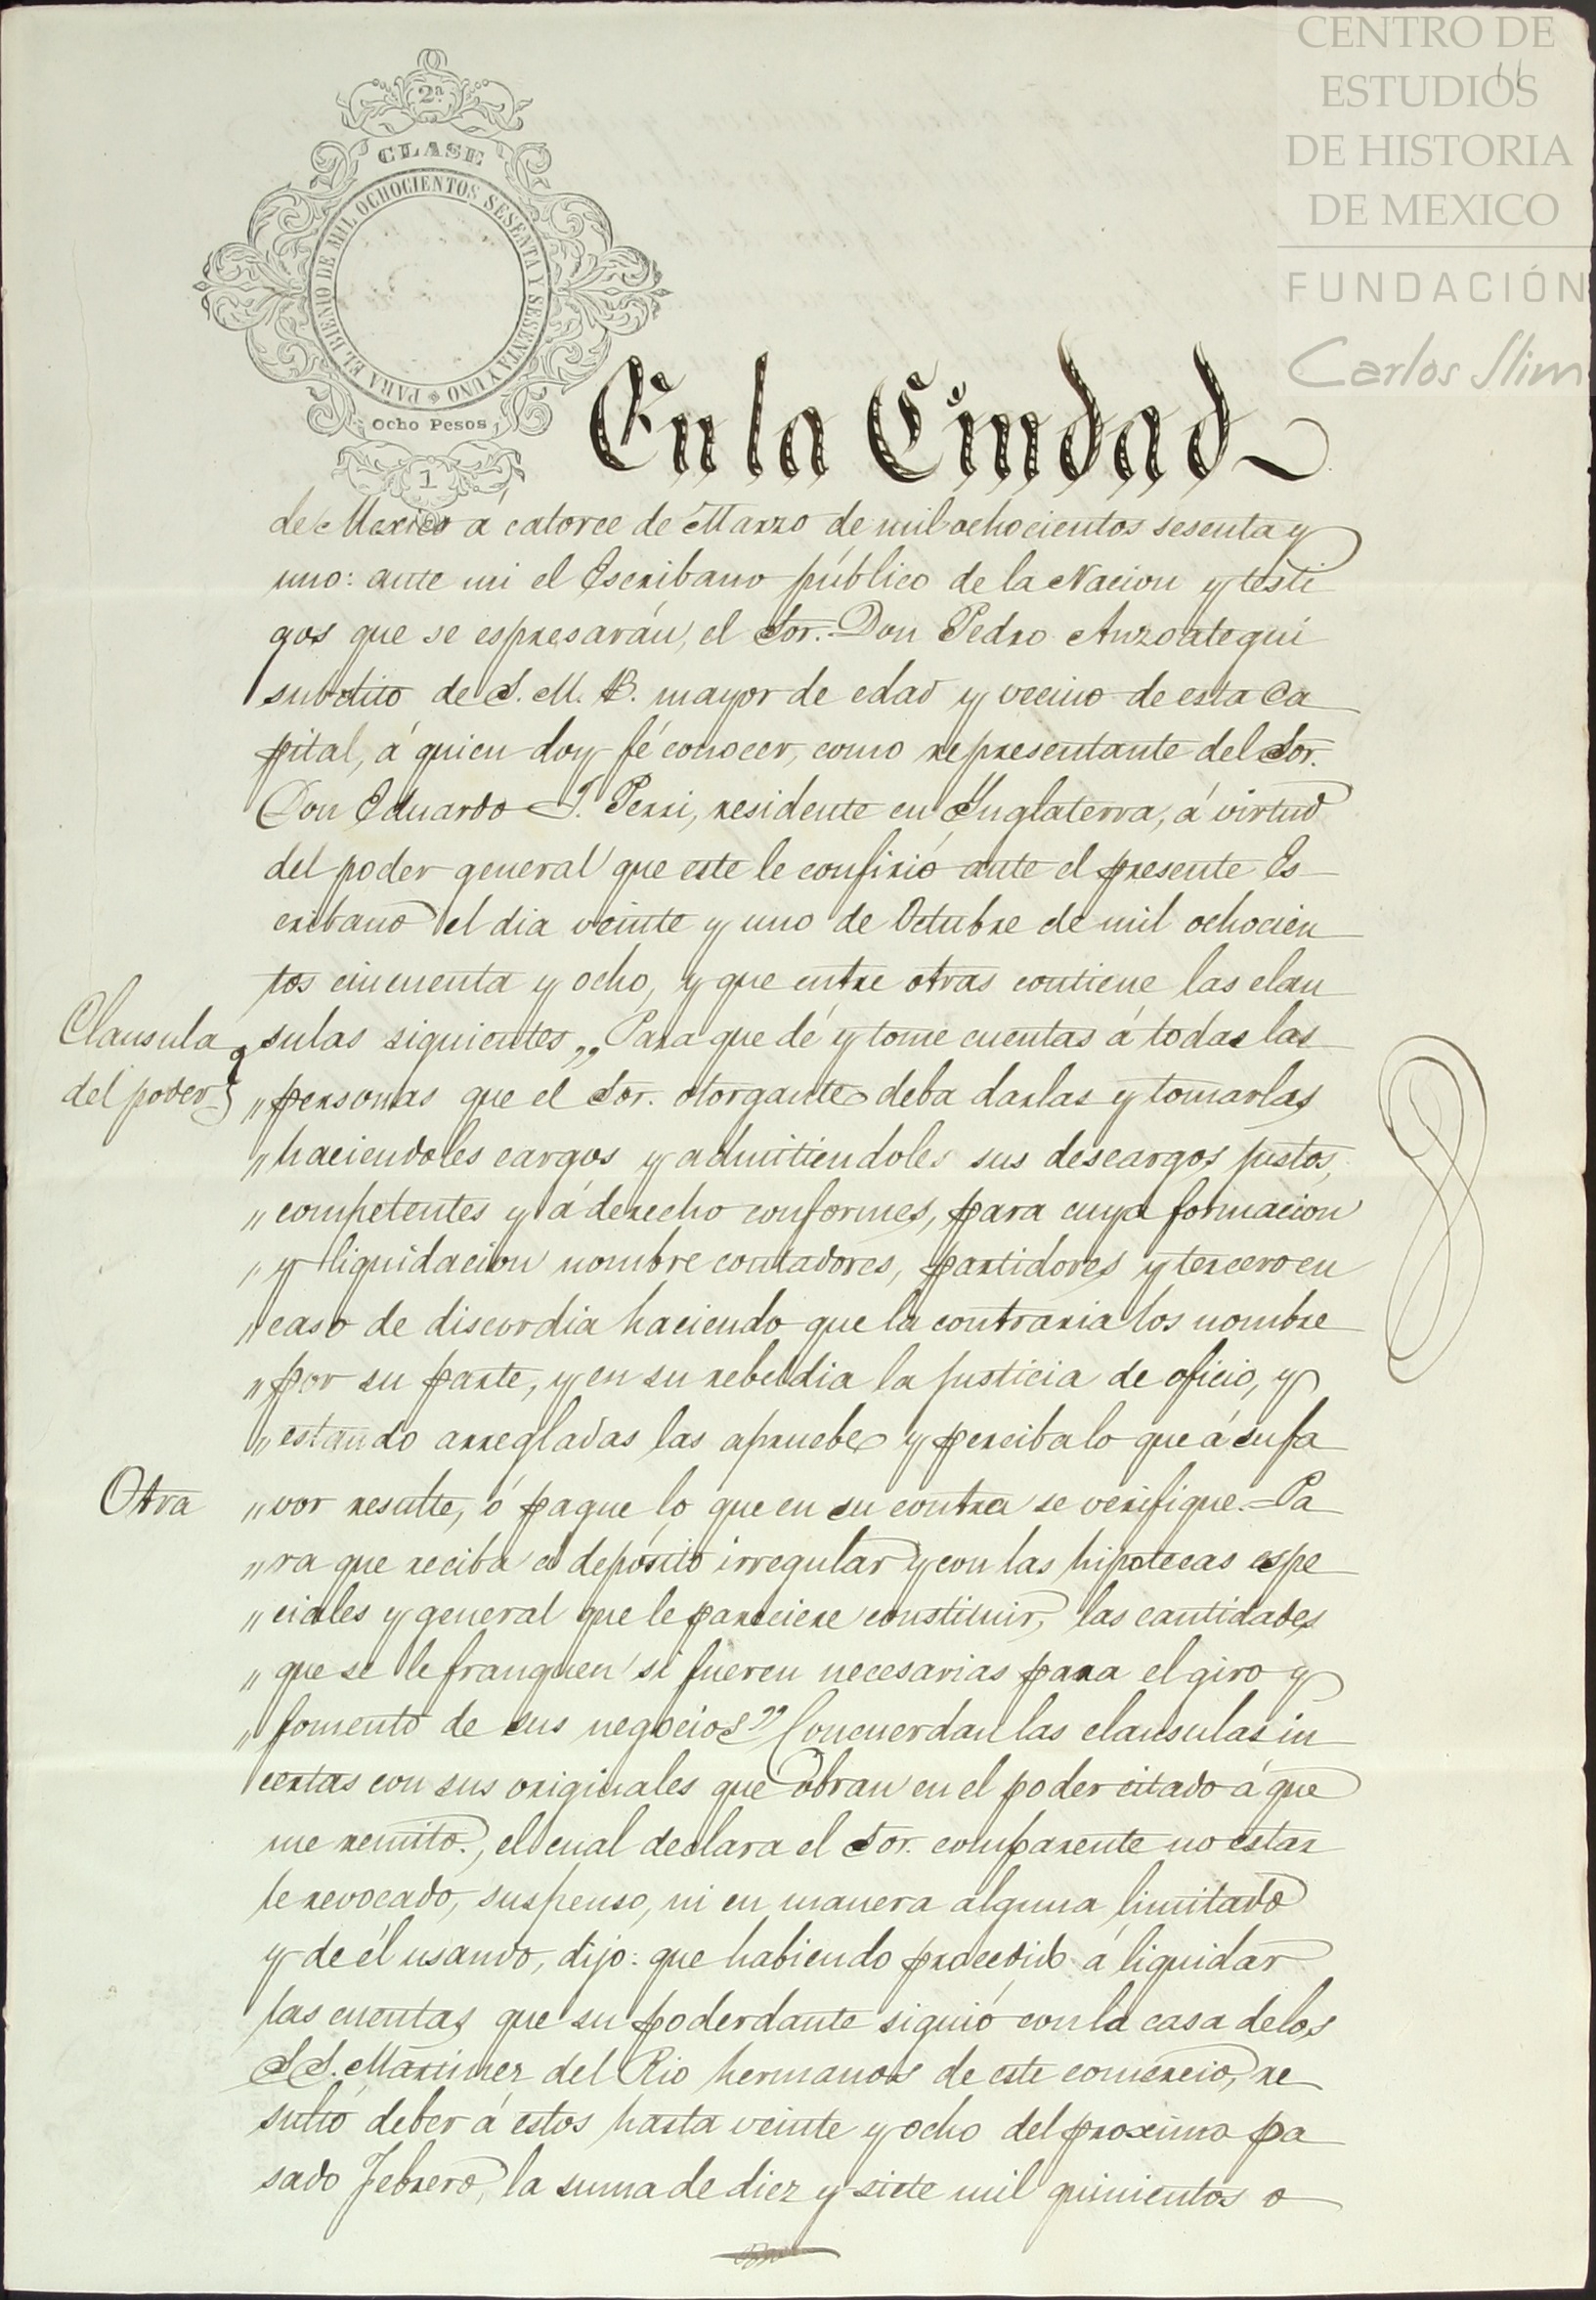 CENTRO DE
ESTUDIOS
DE HISTORIA
DE MEXICO
FUNDACIÓN
Carlos Slim
11
2ª
CLASE
PARA EL BIENIO DE MIL OCHOCIENTOS SESENTA Y SESENTA Y UNO
Ocho Pesos
1
En la Ciudad
de Mexico á catorce de Marzo de mil ochocientos sesenta y
uno: ante mi el Escribano público de la Nacion y testi
gos que se espresarán, el Sor. Don Pedro Anzoategui
subdito de S. M. B. mayor de edad y vecino de esta Ca
pital, á quien doy fé conocer, como representante del Sor.
Don Eduardo J. Perri, residente en Ynglaterra, á virtud
del poder general que este le confirió ante el presente Es
cribano el dia veinte y uno de Octubre de mil ochocien
tos cincuenta y ocho, y que entre otras contiene las clau
Clausula
sulas siguientes „ Para que dé y tome cuentas á todas las
del poder
„ personas que el Sor. otorgante deba darlas y tomarlas
„ haciendoles cargos y admitiendoles sus descargos justos,
„ competentes y á derecho conformes, para cuya formacion
„ y liquidacion nombre contadores, partidores y tercero en
„ caso de discordia haciendo que la contraria los nombre
„ por su parte, y en su rebeldia la justicia de oficio, y
„ estando arregladas las apruebe y perciba lo que á su fa
Otra
„ vor resulte, ó pague lo que en su contra se verifique.=Pa
„ ra que reciba á depósito irregular y con las hipotecas espe
„ ciales y general que le pareciere constituir, las cantidades
„ que se le franqueen si fueren necesarias para el giro y
„ fomento de sus negocios" Concuerdan las clausulas in
certas con sus originales que obran en el poder citado á que
me remito., el cual declara el Sor. comparente no estar
le revocado, suspenso, ni en manera alguna limitado
y de él usando, dijo: que habiendo procedido á liquidar
las cuentas que su poderdante siguió con la casa de los
S S. Martinez del Rio hermanos de este comercio, re
sultó deber á estos hasta veinte y ocho del proximo pa
sado Febrero, la suma de diez y siete mil quinientos o